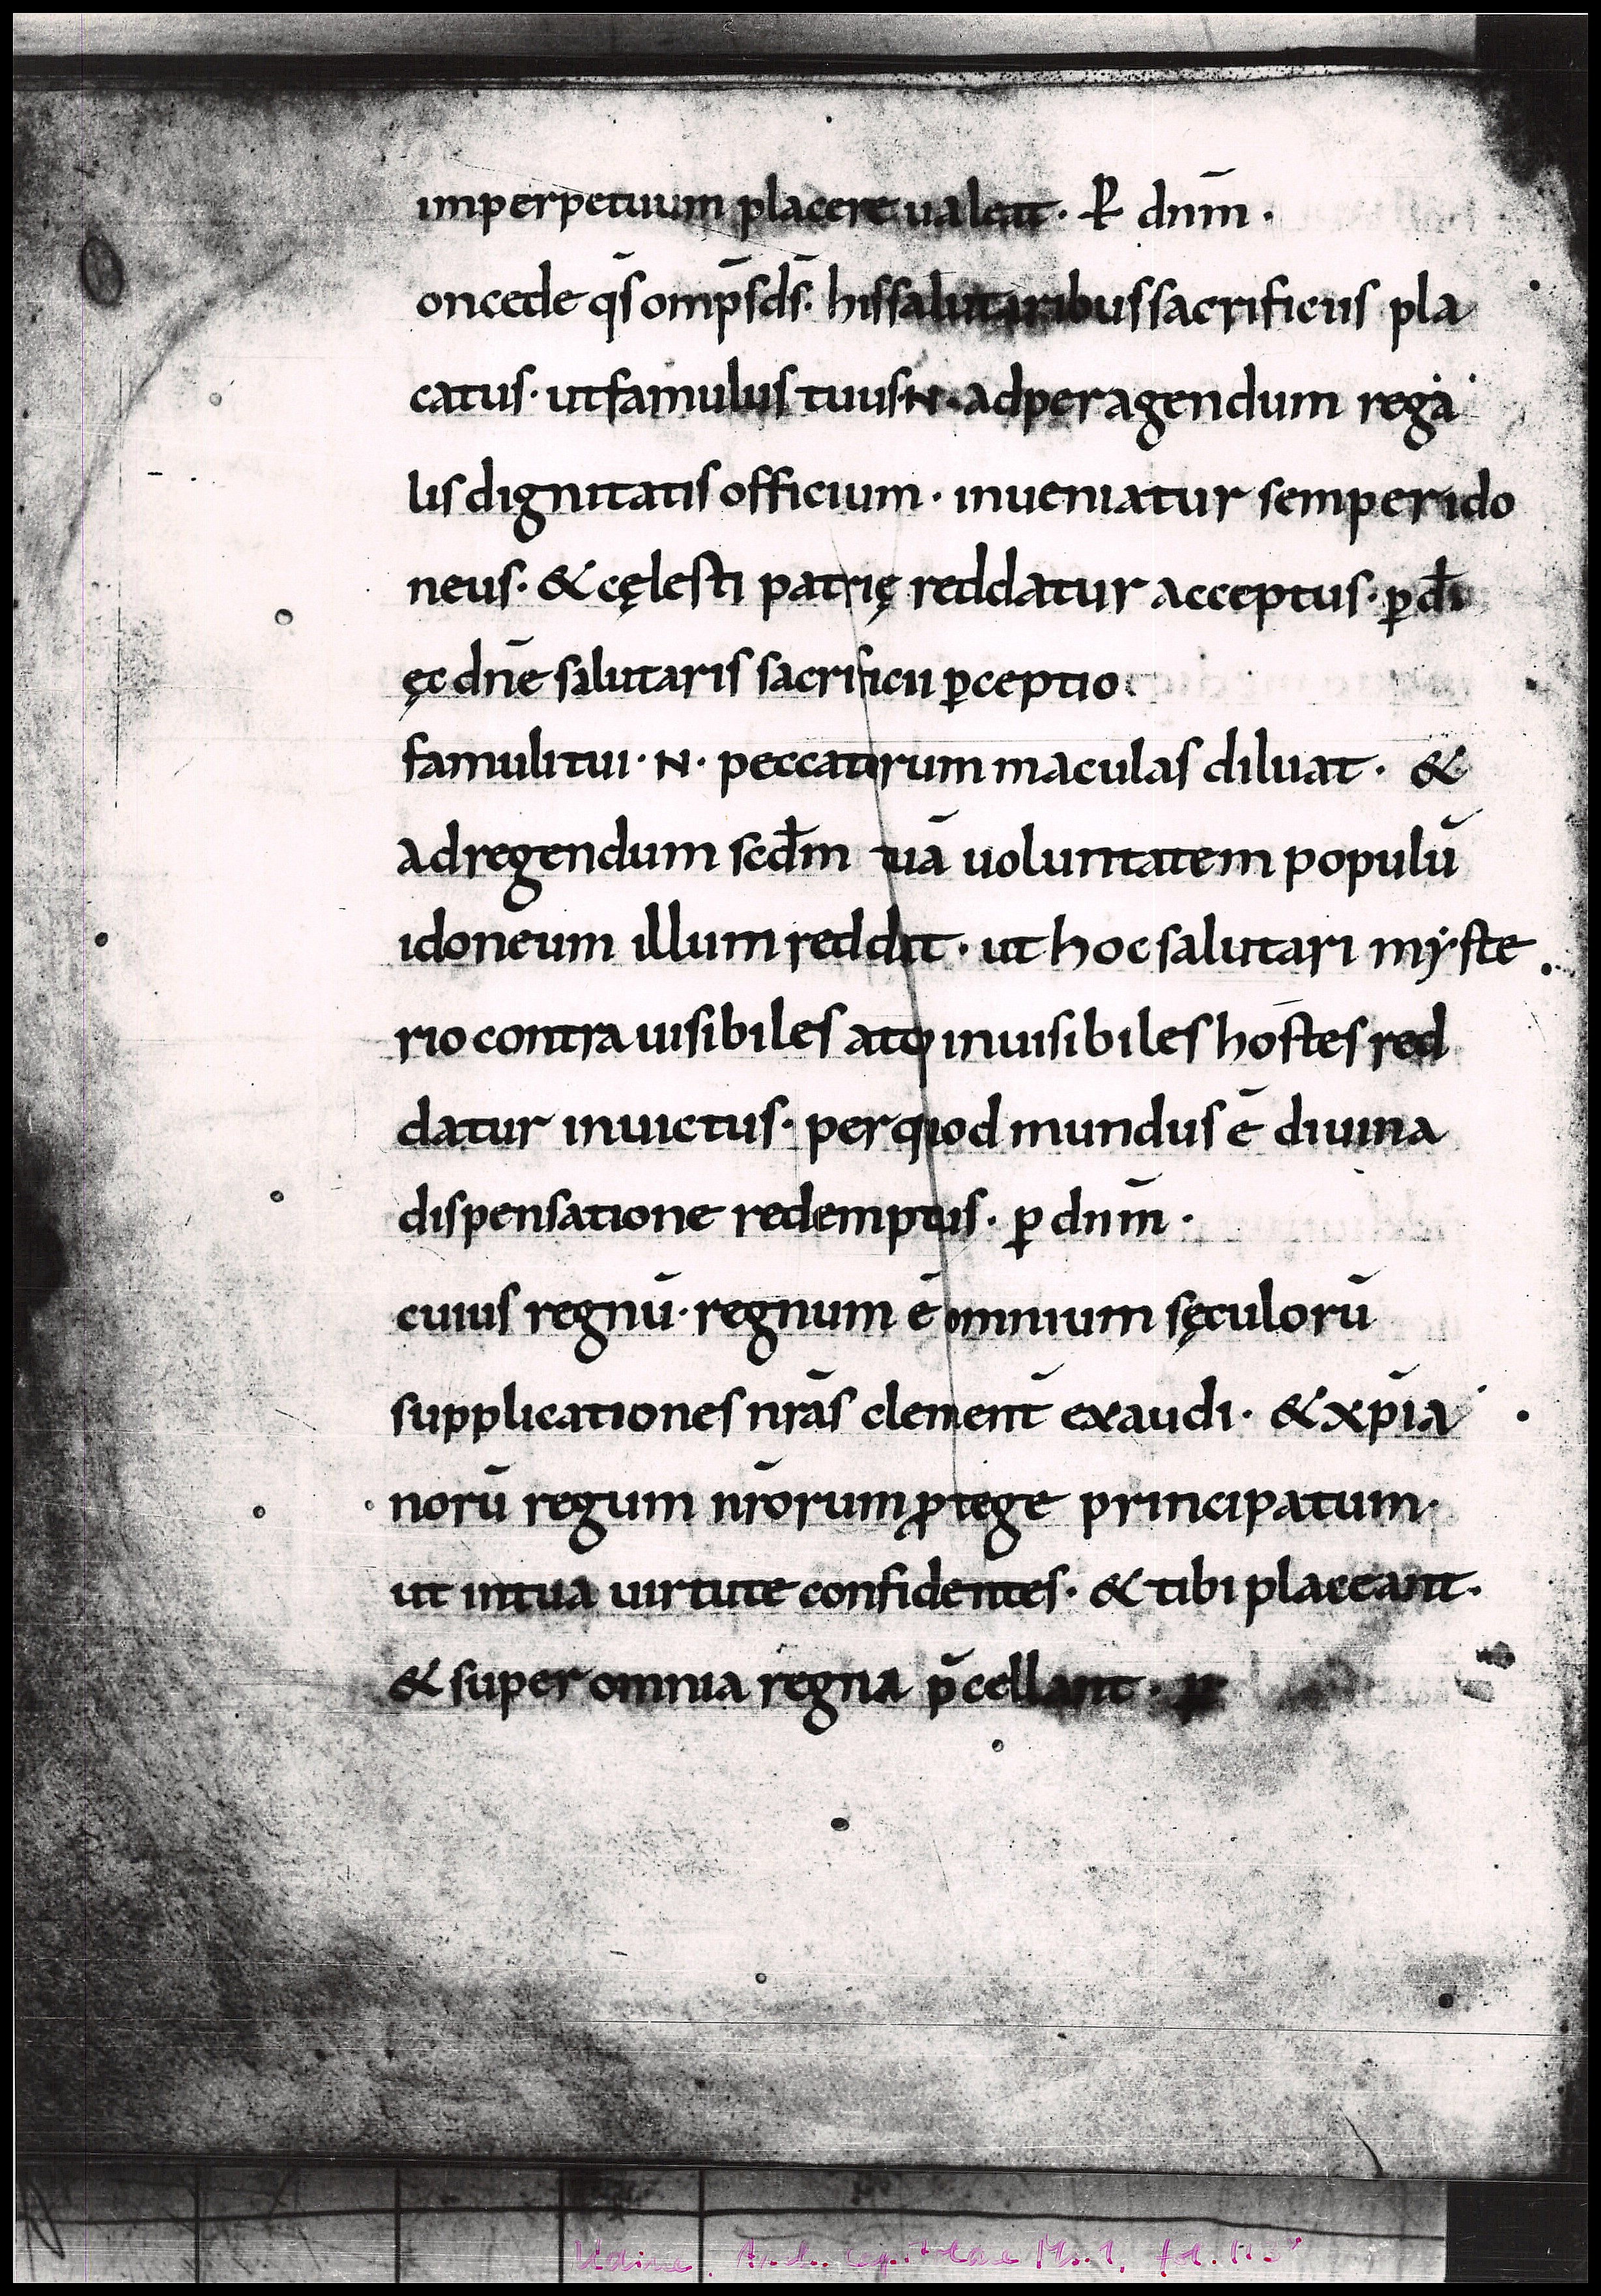 imperpetuum placere ualeat · P̲ dnm̄ ·
oncede q̄s omp̄s ds̄ · his salutaribus sacrificiis pla
catus · ut famulus tuus N · ad peragendum rega
lis dignitatis officium · inueniatur semper ido
neus · & cęlesti patrię reddatur acceptus · p̲ d̄
ęc dn̄e salutaris sacrificii p̲ceptio
famuli tui · N · peccatorum maculas diluat · &
ad regendum scd̄m tuā uoluntatem populū
idoneum illum reddat · ut hoc salutari myste
rio contra uisibiles atq; inuisibiles hostes red
datur inuictus · per quod mundus ē diuina
dispensatione redemptus · p̲ dnm̄ ·
cuius regnū · regnum ē omnium sęculorū
supplicationes nr̄as clement̄ exaudi · & xp̄ia
norū regum nr̄orum p̲tege principatum ·
ut in tua uirtute confidentes · & tibi placeant ·
& super omnia regna p̄cellant · p̲
Udine, fol.